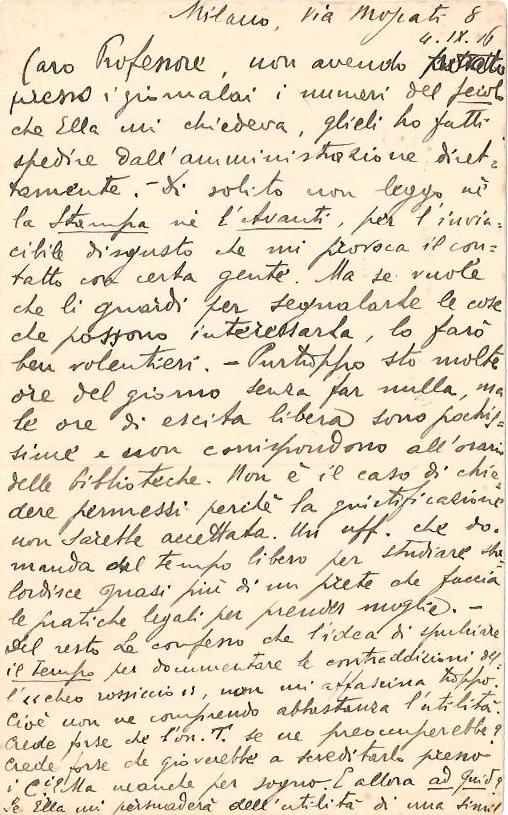 Milano, Via Moscati 8
4. IX. 16
Caro Professore, non avendo
presso i giornalai i numeri del Secolo
che Ella mi chiedeva, glieli ho fatti
spedire dall'amministrazione diret=
tamente. - Di solito non leggo nè
la Stampa nè l'Avanti, per l'invin=
cibile disgusto che mi provoca il con=
tatto con certa gente. Ma se vuole
che li guardi per segnalarle le cose
che possono interessarla, lo farò
ben volentieri. - Purtroppo sto molte
ore del giorno senza far nulla, ma
le ore di escita libera sono pochis=
sime e non corrispondono all'orario
delle biblioteche. Non è il caso di chie=
dere permessi perchè la giustificazione
non sarebbe accettata. Un uff. che do=
manda del tempo libero per studiare sba=
lordisce quasi più di un prete che faccia
le pratiche legali per prender moglie. -
Del resto Le confesso che l'idea di spulciare
il Tempo per documentare le contraddizioni del=
l'"cheo rossiccio", non mi affascina troppo.
Cioè non ne comprendo abbastanza l'utilità.
Crede forse che l'on. T. se ne preoccuperebbe?
Crede forse che gioverebbe a screditarlo presso
i C.i? Ma neanche per sogno. E allora ad quid?
Se Ella mi persuaderà dell'utilità di una simil